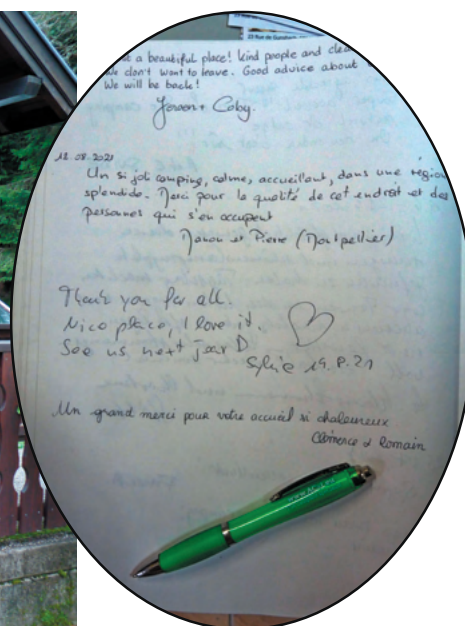 23 Rue de
a beautiful place! kind people and clea
We don't want to leave. Good advice about
We will be back!
Coby.
12.08.2021
Un si joli camping, calme, accueillant, dans une région
splendide. Merci pour la qualité de cet endroit et des
personnes qui s'en occupent
Manou et Pierre (Montpellier)
Thank you for all.
Nice place, I love it.
See us next jear D
Sylvie 19.8.21
Un grand merci pour votre accueil si chaleureux
Clémence & Romain